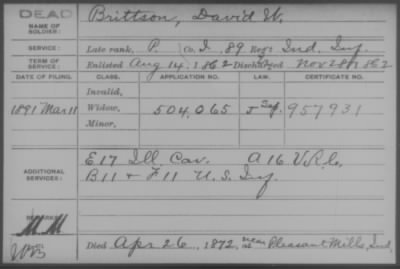 DEAD
NAME OF SOLDIER:
Brittson, David W.
SERVICE:
Late rank, P. Co. I, 89 Reg't Ind. Inf.
TERM OF SERVICE:
Enlisted Aug 14, 1862 Discharged Nov 28, 1862
DATE OF FILING. CLASS. APPLICATION NO. LAW. CERTIFICATE NO.
Invalid,
1891 Mar 11 Widow, 504,065 957931
Minor,
ADDITIONAL SERVICES:
E 17 Ill. Cav. A 16 V.R.C.
B 11 & F 11 U.S. Inf.
REMARKS:
Died Apr 26, 1872, near Pleasant Mills, Ind.